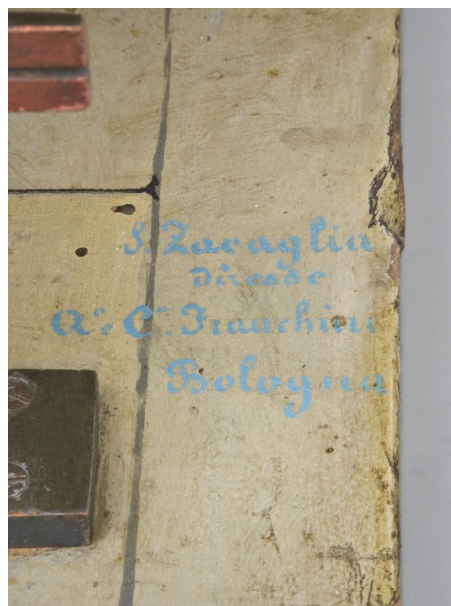 S. Zavaglia
diresse
A. e C. Franchini
Bologna